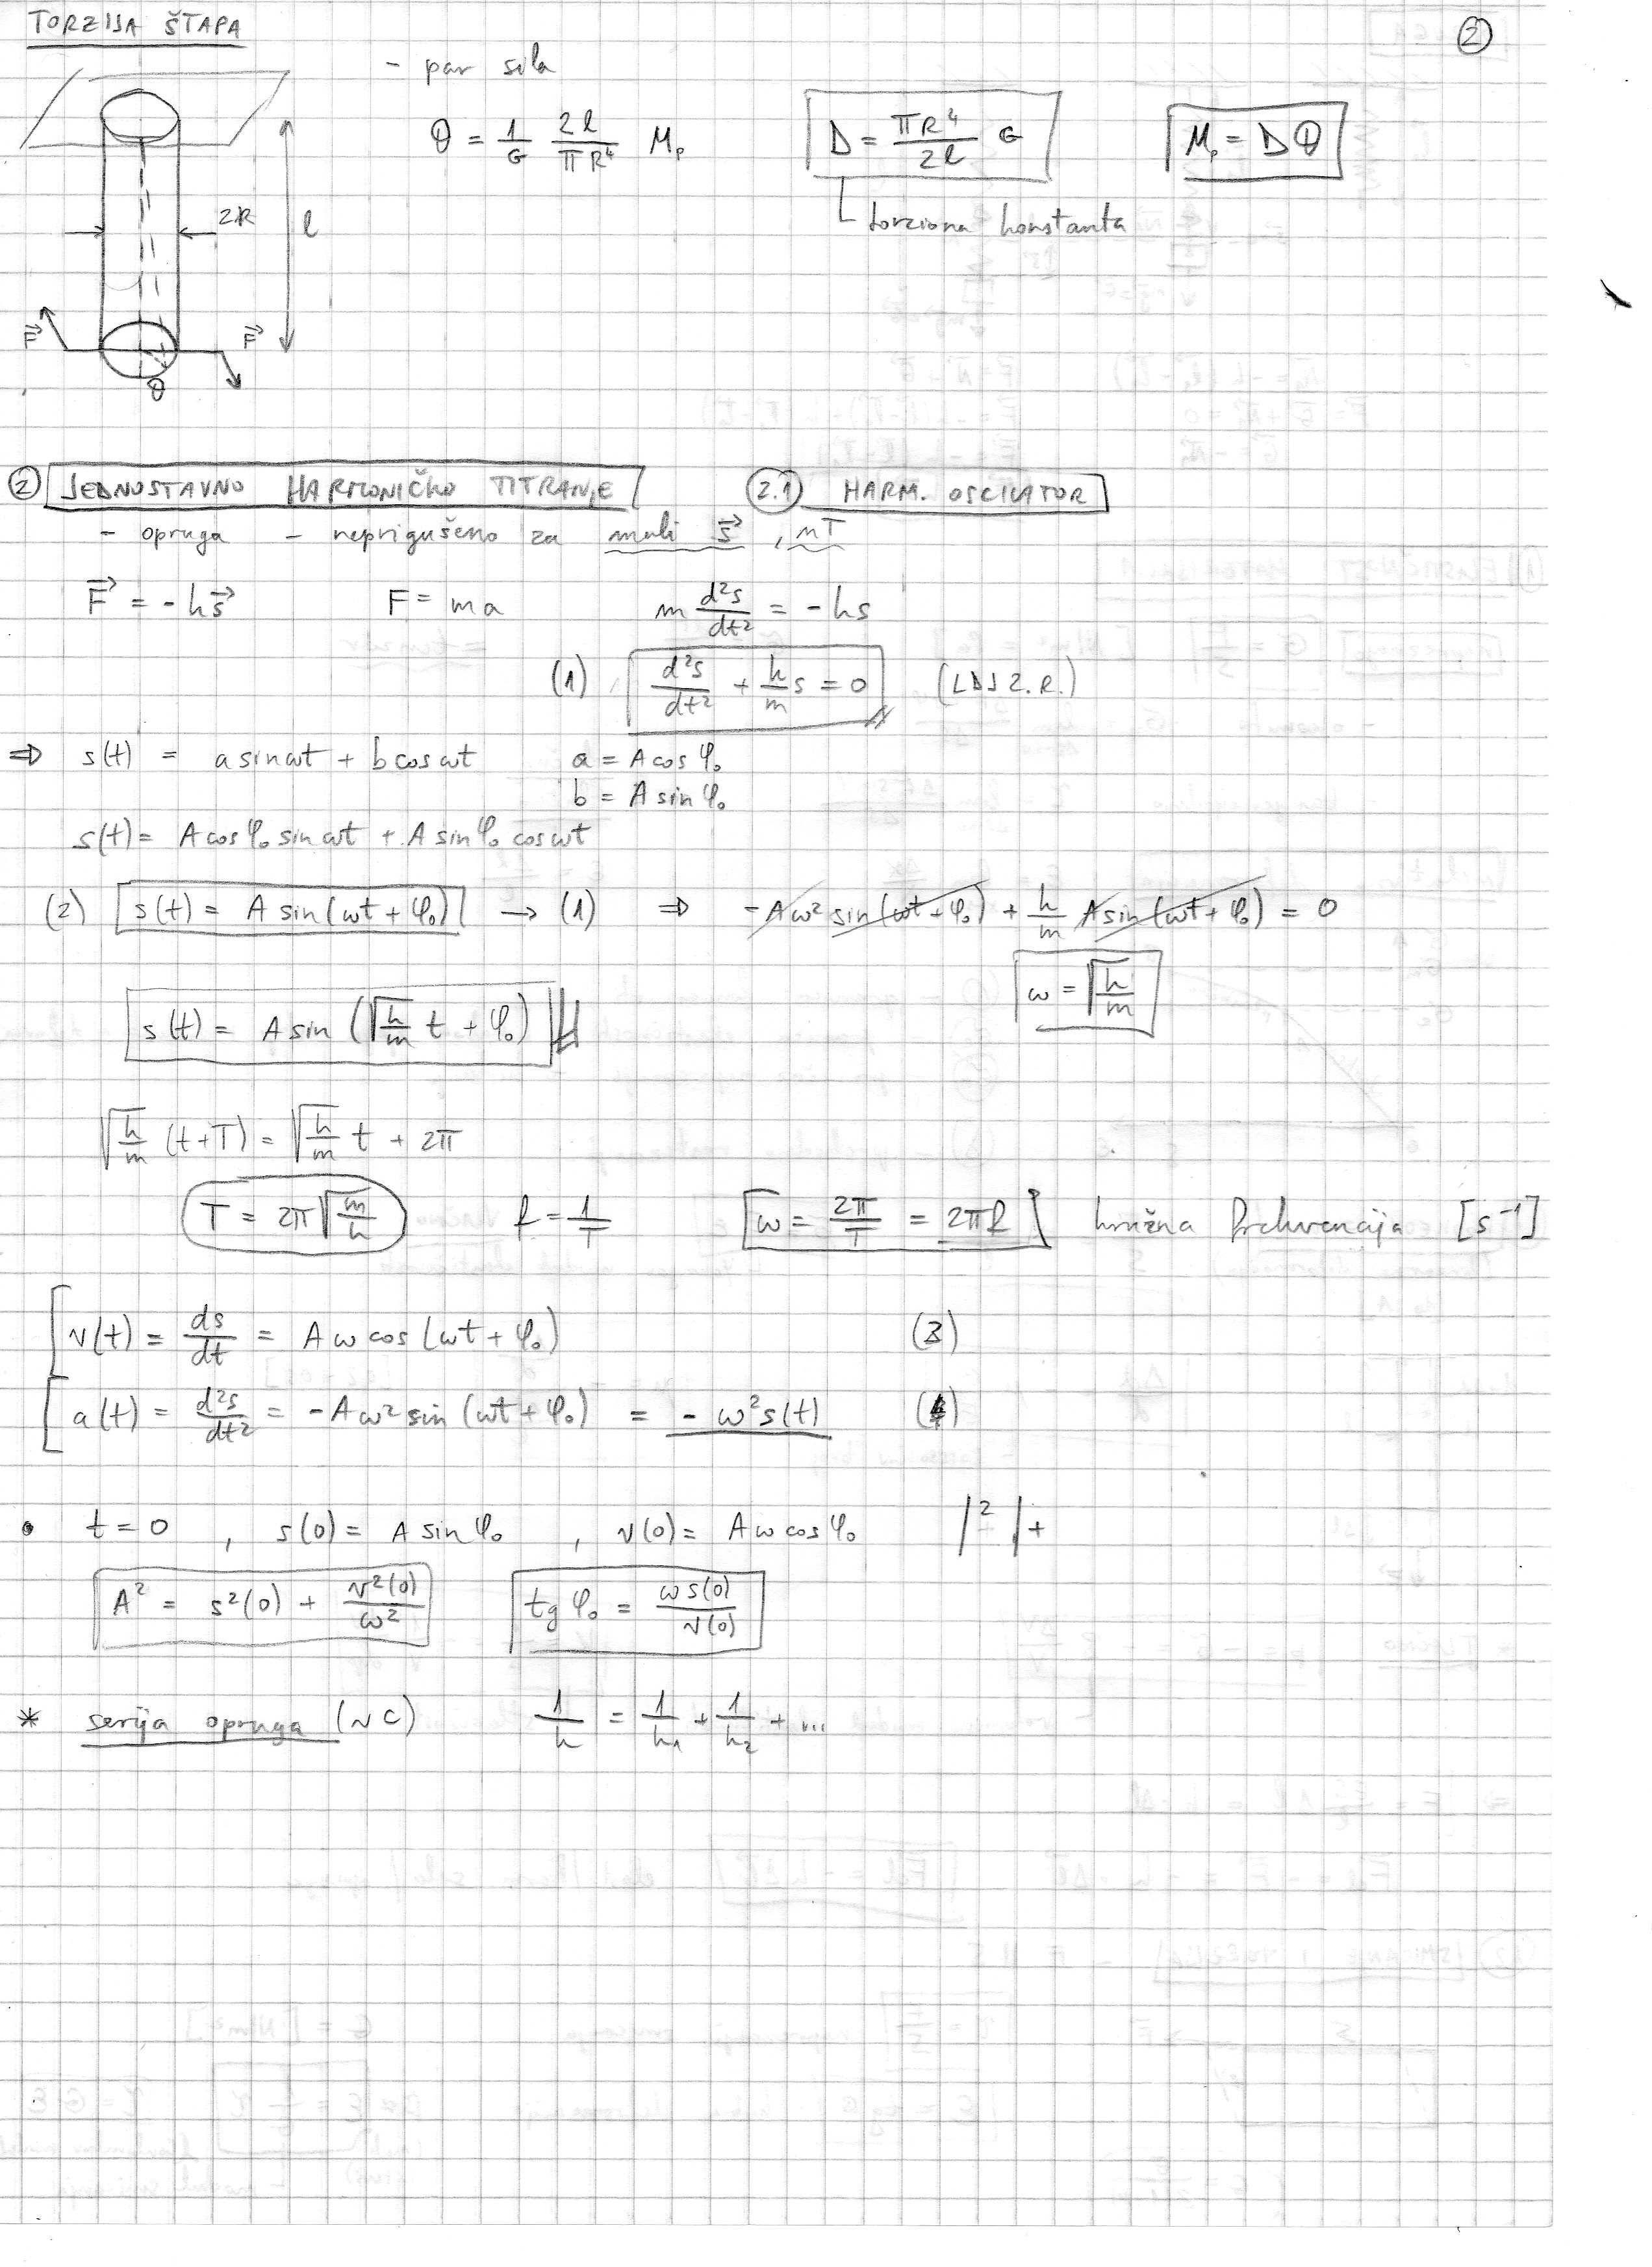 TORZIJA ŠTAPA
②
- par sila
θ = 1/G 2l/(πR⁴) Mₚ
D = πR⁴/(2l) G
Mₚ = Dθ
torziona konstanta
2R
l
F⃗
F⃗
θ
② JEDNOSTAVNO HARMONIČKO TITRANJE
2.1 HARM. OSCILATOR
- opruga - neprigušeno za mali s⃗, mT
F⃗ = -ks⃗ F = ma m d²s/dt² = -ks
(1) d²s/dt² + k/m s = 0 (LDJ 2.R.)
⇒ s(t) = a sin ωt + b cos ωt a = A cos φ₀
b = A sin φ₀
s(t) = A cos φ₀ sin ωt + A sin φ₀ cos ωt
(2) s(t) = A sin(ωt + φ₀) → (1) ⇒ -Aω² sin(ωt + φ₀) + k/m A sin(ωt + φ₀) = 0
ω = √(k/m)
s(t) = A sin(√(k/m) t + φ₀)
√(k/m) (t+T) = √(k/m) t + 2π
T = 2π√(m/k) f = 1/T ω = 2π/T = 2πf kružna frekvencija [s⁻¹]
v(t) = ds/dt = Aω cos(ωt + φ₀) (3)
a(t) = d²s/dt² = -Aω² sin(ωt + φ₀) = -ω²s(t) (4)
• t = 0 , s(0) = A sin φ₀ , v(0) = Aω cos φ₀ /² /+
A² = s²(0) + v²(0)/ω² tg φ₀ = ωs(0)/v(0)
* serija opruga (~C) 1/k = 1/k₁ + 1/k₂ + ...